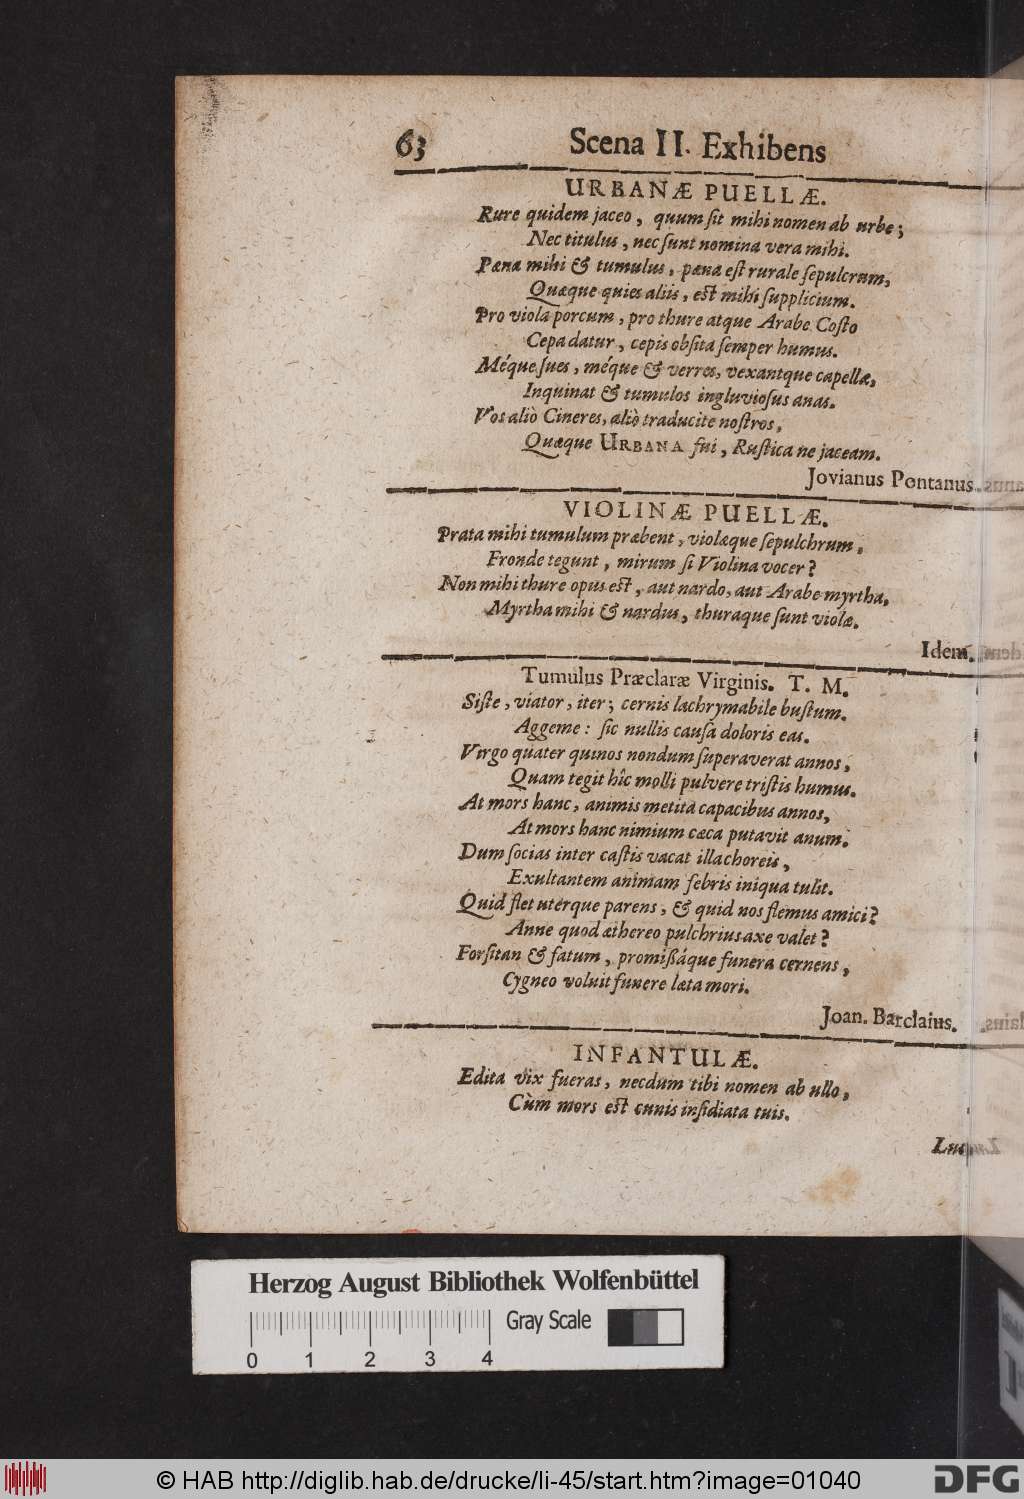 63 Scena II. Exhibens
URBANÆ PUELLÆ.
Rure quidem jaceo, quum sit mihi nomen ab urbe;
Nec titulus, nec sunt nomina vera mihi.
Pœna mihi & tumulus, pœna est rurale sepulcrum,
Quæque quies aliis, est mihi supplicium.
Pro viola porcum, pro thure atque Arabe Costo
Cepa datur, cepis obsita semper humus.
Méque sues, méque & verres, vexantque capellæ,
Inquinat & tumulos ingluviosus anas.
Vos aliò Cineres, aliò traducite nostros,
Quæque URBANA fui, Rustica ne jaceam.
Jovianus Pontanus.
VIOLINÆ PUELLÆ.
Prata mihi tumulum præbent, violæque sepulchrum,
Fronde tegunt, mirum si Violina vocer?
Non mihi thure opus est, aut nardo, aut Arabe myrtha,
Myrtha mihi & nardus, thuraque sunt violæ.
Idem.
Tumulus Præclaræ Virginis. T. M.
Siste, viator, iter; cernis lachrymabile bustum.
Aggeme: sic nullis causa doloris eas.
Virgo quater quinos nondum superaverat annos,
Quam tegit hîc molli pulvere tristis humus.
At mors hanc, animis metita capacibus annos,
At mors hanc nimium cæca putavit anum.
Dum socias inter castis vacat illa choreis,
Exultantem animam febris iniqua tulit.
Quid flet uterque parens, & quid nos flemus amici?
Anne quod æthereo pulchrius axe valet?
Forsitan & fatum, promissáque funera cernens,
Cygneo voluit funere læta mori.
Joan. Barclaius.
INFANTULÆ.
Edita vix fueras, necdum tibi nomen ab ullo,
Cùm mors est cunis insidiata tuis.
Herzog August Bibliothek Wolfenbüttel
Gray Scale
0 1 2 3 4
© HAB http://diglib.hab.de/drucke/li-45/start.htm?image=01040
DFG